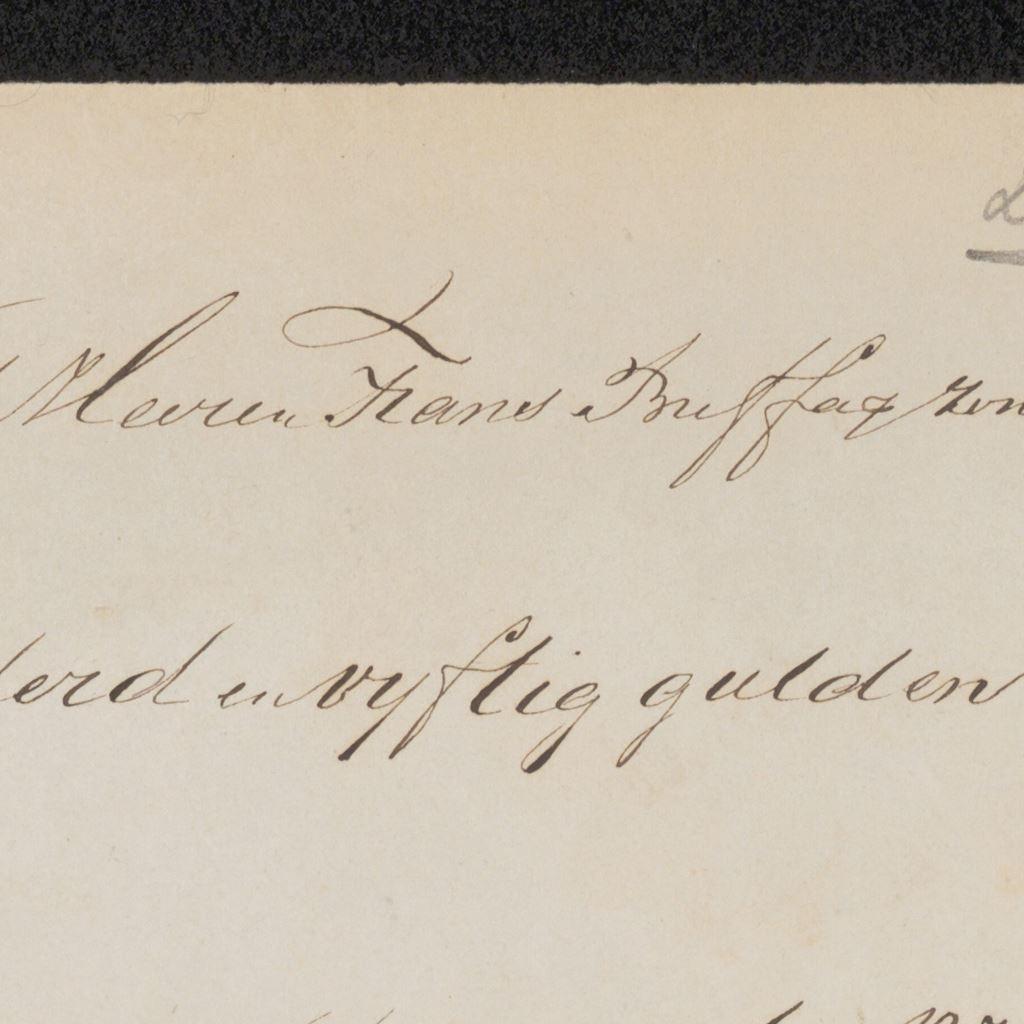 Heeren Frans Buffa & zon
derd en vyftig gulden